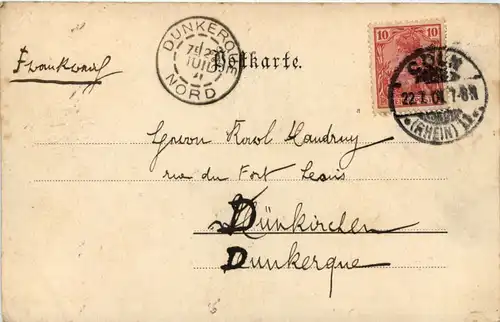 DUNKERQUE
NORD
Postkarte.
10 10
CÖLN
22.7.01. 7-8N
*(RHEIN) 11*
Frankreich
Herrn Karl
rue du Fort Louis
Dünkirchen
Dunkerque